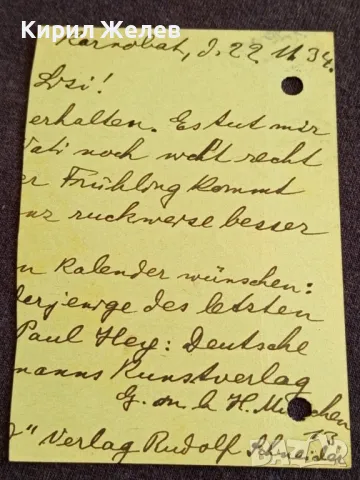 Кирил Желев
Karnobat, d. 22. II 34.
Lisi!
erhalten. Es tut mir
Vati noch nicht recht
er Frühling kommt
nur ruckweise besser
n Kalender wünschen:
derjenige des letzten
Paul Hey: Deutsche
manns Kunstverlag
G. m. b. H. München
13
" Verlag Rudolf Schneider